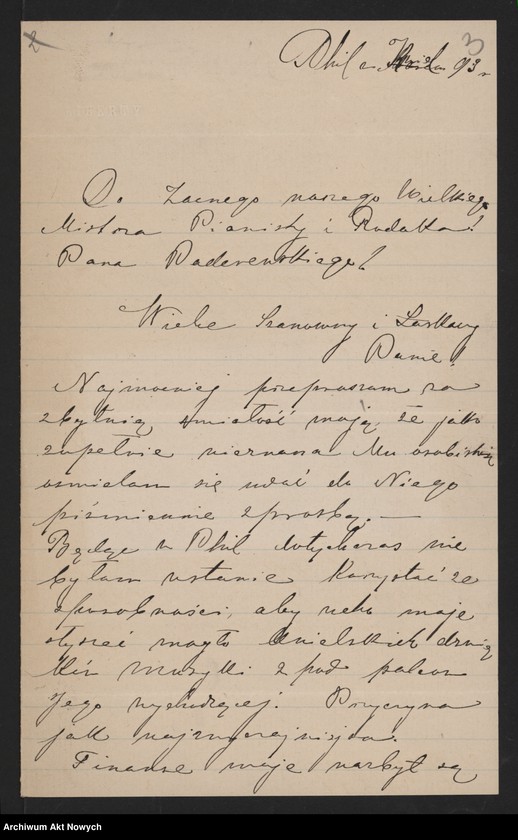 3
Phila 93 r
Do Zacnego naszego Wielkiego
Mistrza Pianisty i Rodaka!
Pana Paderewskiego!
Wielce Szanowny i Łaskawy
Panie!
Najmocniej przepraszam za
zbytnią śmiałość moją, że jako
zupełnie nieznana Mu osobiście
ośmielam się udać do Niego
piśmiennie z prośbą. —
Będąc w Phil dotychczas nie
byłam wstanie Korzystać ze
sposobności, aby ucho moje
słyszeć mogło Anielskich
Muzyki z pod palców
Jego wychodzącej. Przyczyna
jak najzwyczajniejsza.
Finanse moje nazbyt są
Archiwum Akt Nowych